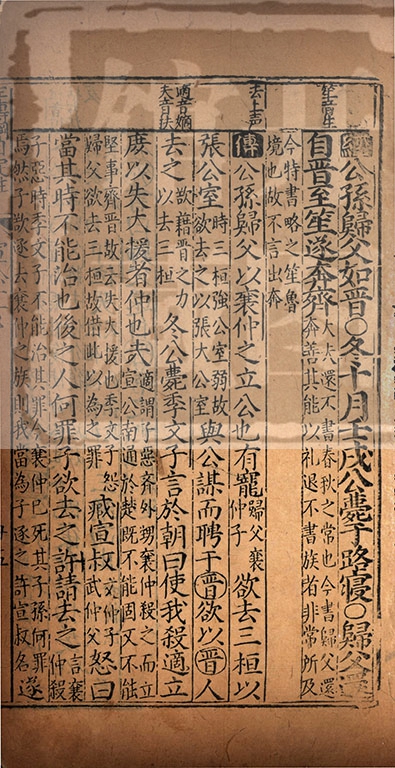 笙音生
去上声
適音嫡
夫音扶
經公孫歸父如晉○冬十月壬戌公薨于路寢○歸父還
自晉至笙遂奔齊大夫還不書春秋之常也今書歸父還奔善其能以禮退不書族者非常所及
今特書略之笙魯境也故不言出奔
傳公孫歸父以襄仲之立公也有寵歸父襄仲子欲去三桓以
張公室時三桓強公室弱故欲去之以張大公室與公謀而聘于晉欲以晉人
去之欲藉晉之力以去三桓冬公薨季文子言於朝曰使我殺適立
庶以失大援者仲也夫適謂子惡齊外甥襄仲殺之而立宣公南通於楚既不能固又不能
堅事齊晉故云失大援也季文子怨歸父欲去三桓故借此以為之罪臧宣叔文仲子武仲父怒曰
當其時不能治也後之人何罪子欲去之許請去之言襄仲殺
子惡時季文子不能治其罪今襄仲已死其子孫何罪焉然子欲逐去襄仲之族則我當為子逐之許宣叔名遂